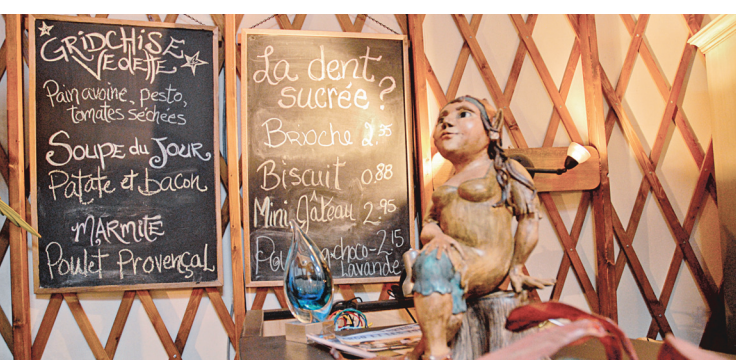 GRiDCHiSE
VEDETTE
Pain avoine, pesto,
tomates séchées
Soupe du Jour
Patate et bacon
MARMITE
Poulet Provençal
La dent
sucrée?
Brioche 2.35
Biscuit 0.88
Mini Gâteau 2.95
choco-2.15
Lavande